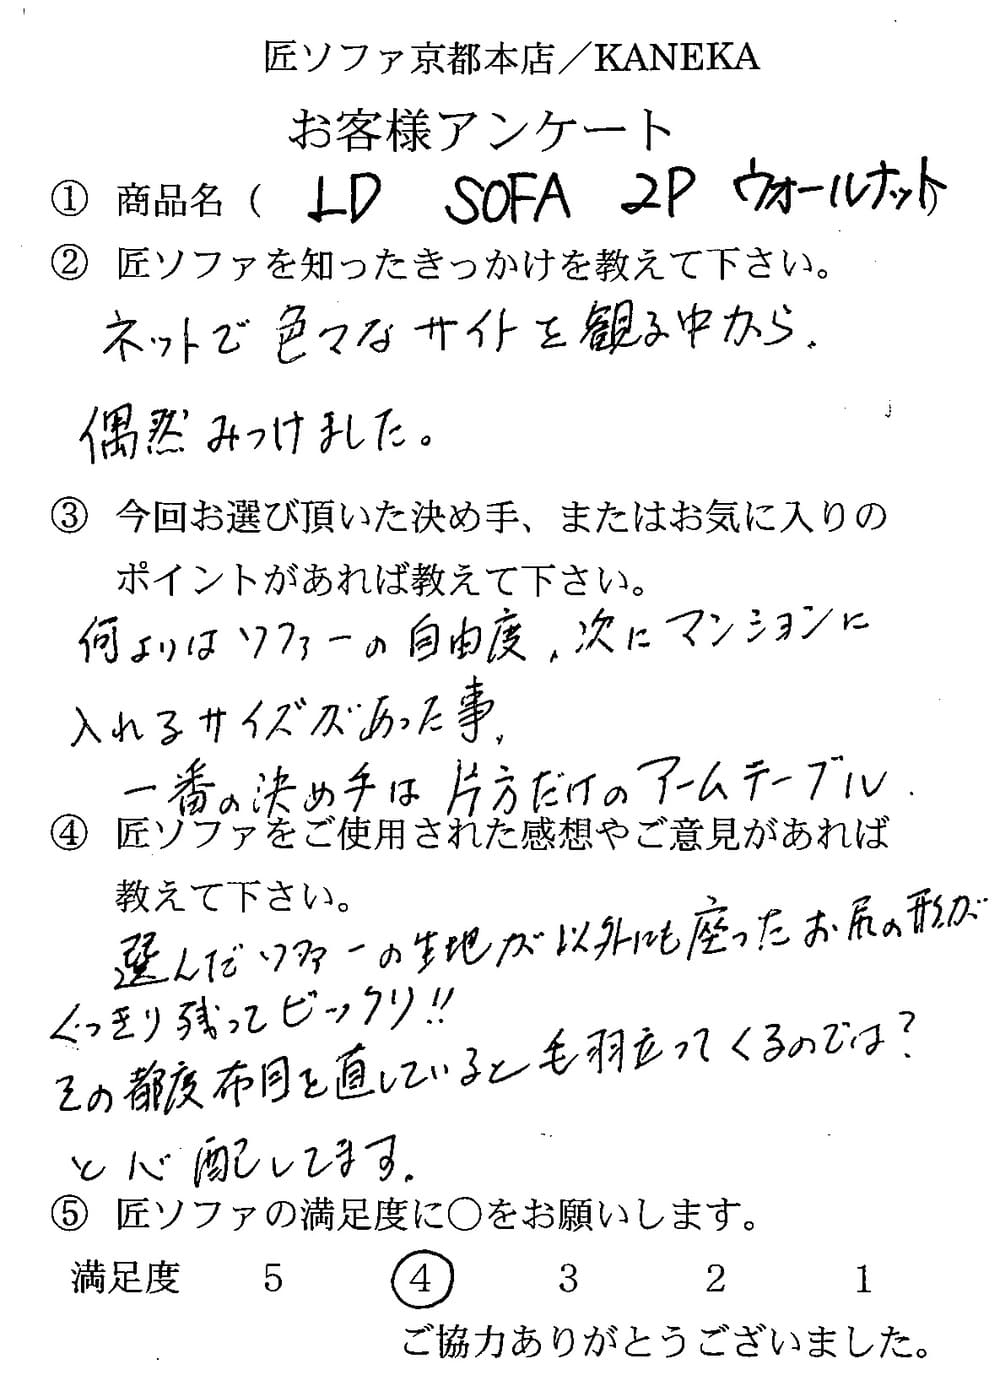 匠ソファ京都本店／KANEKA
お客様アンケート
① 商品名（ LD SOFA 2P ウォールナット）
② 匠ソファを知ったきっかけを教えて下さい。
ネットで色々なサイトを観る中から、
偶然みつけました。
③ 今回お選び頂いた決め手、またはお気に入りの
ポイントがあれば教えて下さい。
何よりはソファーの自由度、次にマンションに
入れるサイズがあった事、
一番の決め手は片方だけのアームテーブル．
④ 匠ソファをご使用された感想やご意見があれば
教えて下さい。
選んだソファーの生地が以外にも座ったお尻の形が
くっきり残ってビックリ!!
その都度布目を直していると毛羽立ってくるのでは?
と心配してます．
⑤ 匠ソファの満足度に〇をお願いします。
満足度 5 ④ 3 2 1
ご協力ありがとうございました。